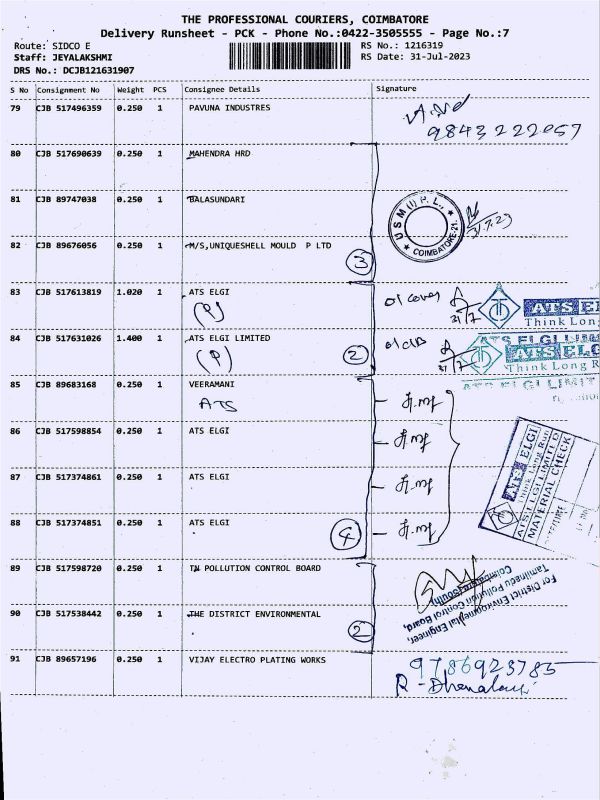 THE PROFESSIONAL COURIERS, COIMBATORE
Delivery Runsheet - PCK - Phone No.:0422-3505555 - Page No.:7
Route: SIDCO E
RS No.: 1216319
Staff: JEYALAKSHMI
RS Date: 31-Jul-2023
DRS No.: DCJB121631907
S No Consignment No Weight PCS Consignee Details Signature
79 CJB 517496359 0.250 1 PAVUNA INDUSTRES
9843222057
80 CJB 517690639 0.250 1 MAHENDRA HRD
81 CJB 89747038 0.250 1 BALASUNDARI
USM (I) P. L., ★ COIMBATORE-21. ★
31.7.23
82 CJB 89676056 0.250 1 M/S,UNIQUESHELL MOULD P LTD
3
83 CJB 517613819 1.020 1 ATS ELGI
(P)
cover
31/7
ATS EL
Think Long R
84 CJB 517631026 1.400 1 ATS ELGI LIMITED
(P)
2
31/7
ATS ELGI LIM
ATS ELG
Think Long R
ATS ELGI LIMIT
85 CJB 89683168 0.250 1 VEERAMANI
ATS
86 CJB 517598854 0.250 1 ATS ELGI
87 CJB 517374861 0.250 1 ATS ELGI
ATS ELGI
Think Long Run
ATS ELGI LIMITED
MATERIAL CHECK
88 CJB 517374851 0.250 1 ATS ELGI
4
89 CJB 517598720 0.250 1 TN POLLUTION CONTROL BOARD
For District Environmental Engineer,
Tamilnadu Pollution Control Board,
Coimbatore South
90 CJB 517538442 0.250 1 THE DISTRICT ENVIRONMENTAL
2
91 CJB 89657196 0.250 1 VIJAY ELECTRO PLATING WORKS
9786923785